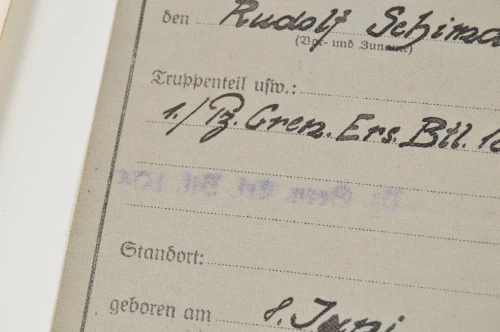 den Rudolf
(Vor- und Zuname)
Truppenteil usw.:
1./Pz. Gren. Ers. Btl. 10
Standort:
geboren am 8. Juni